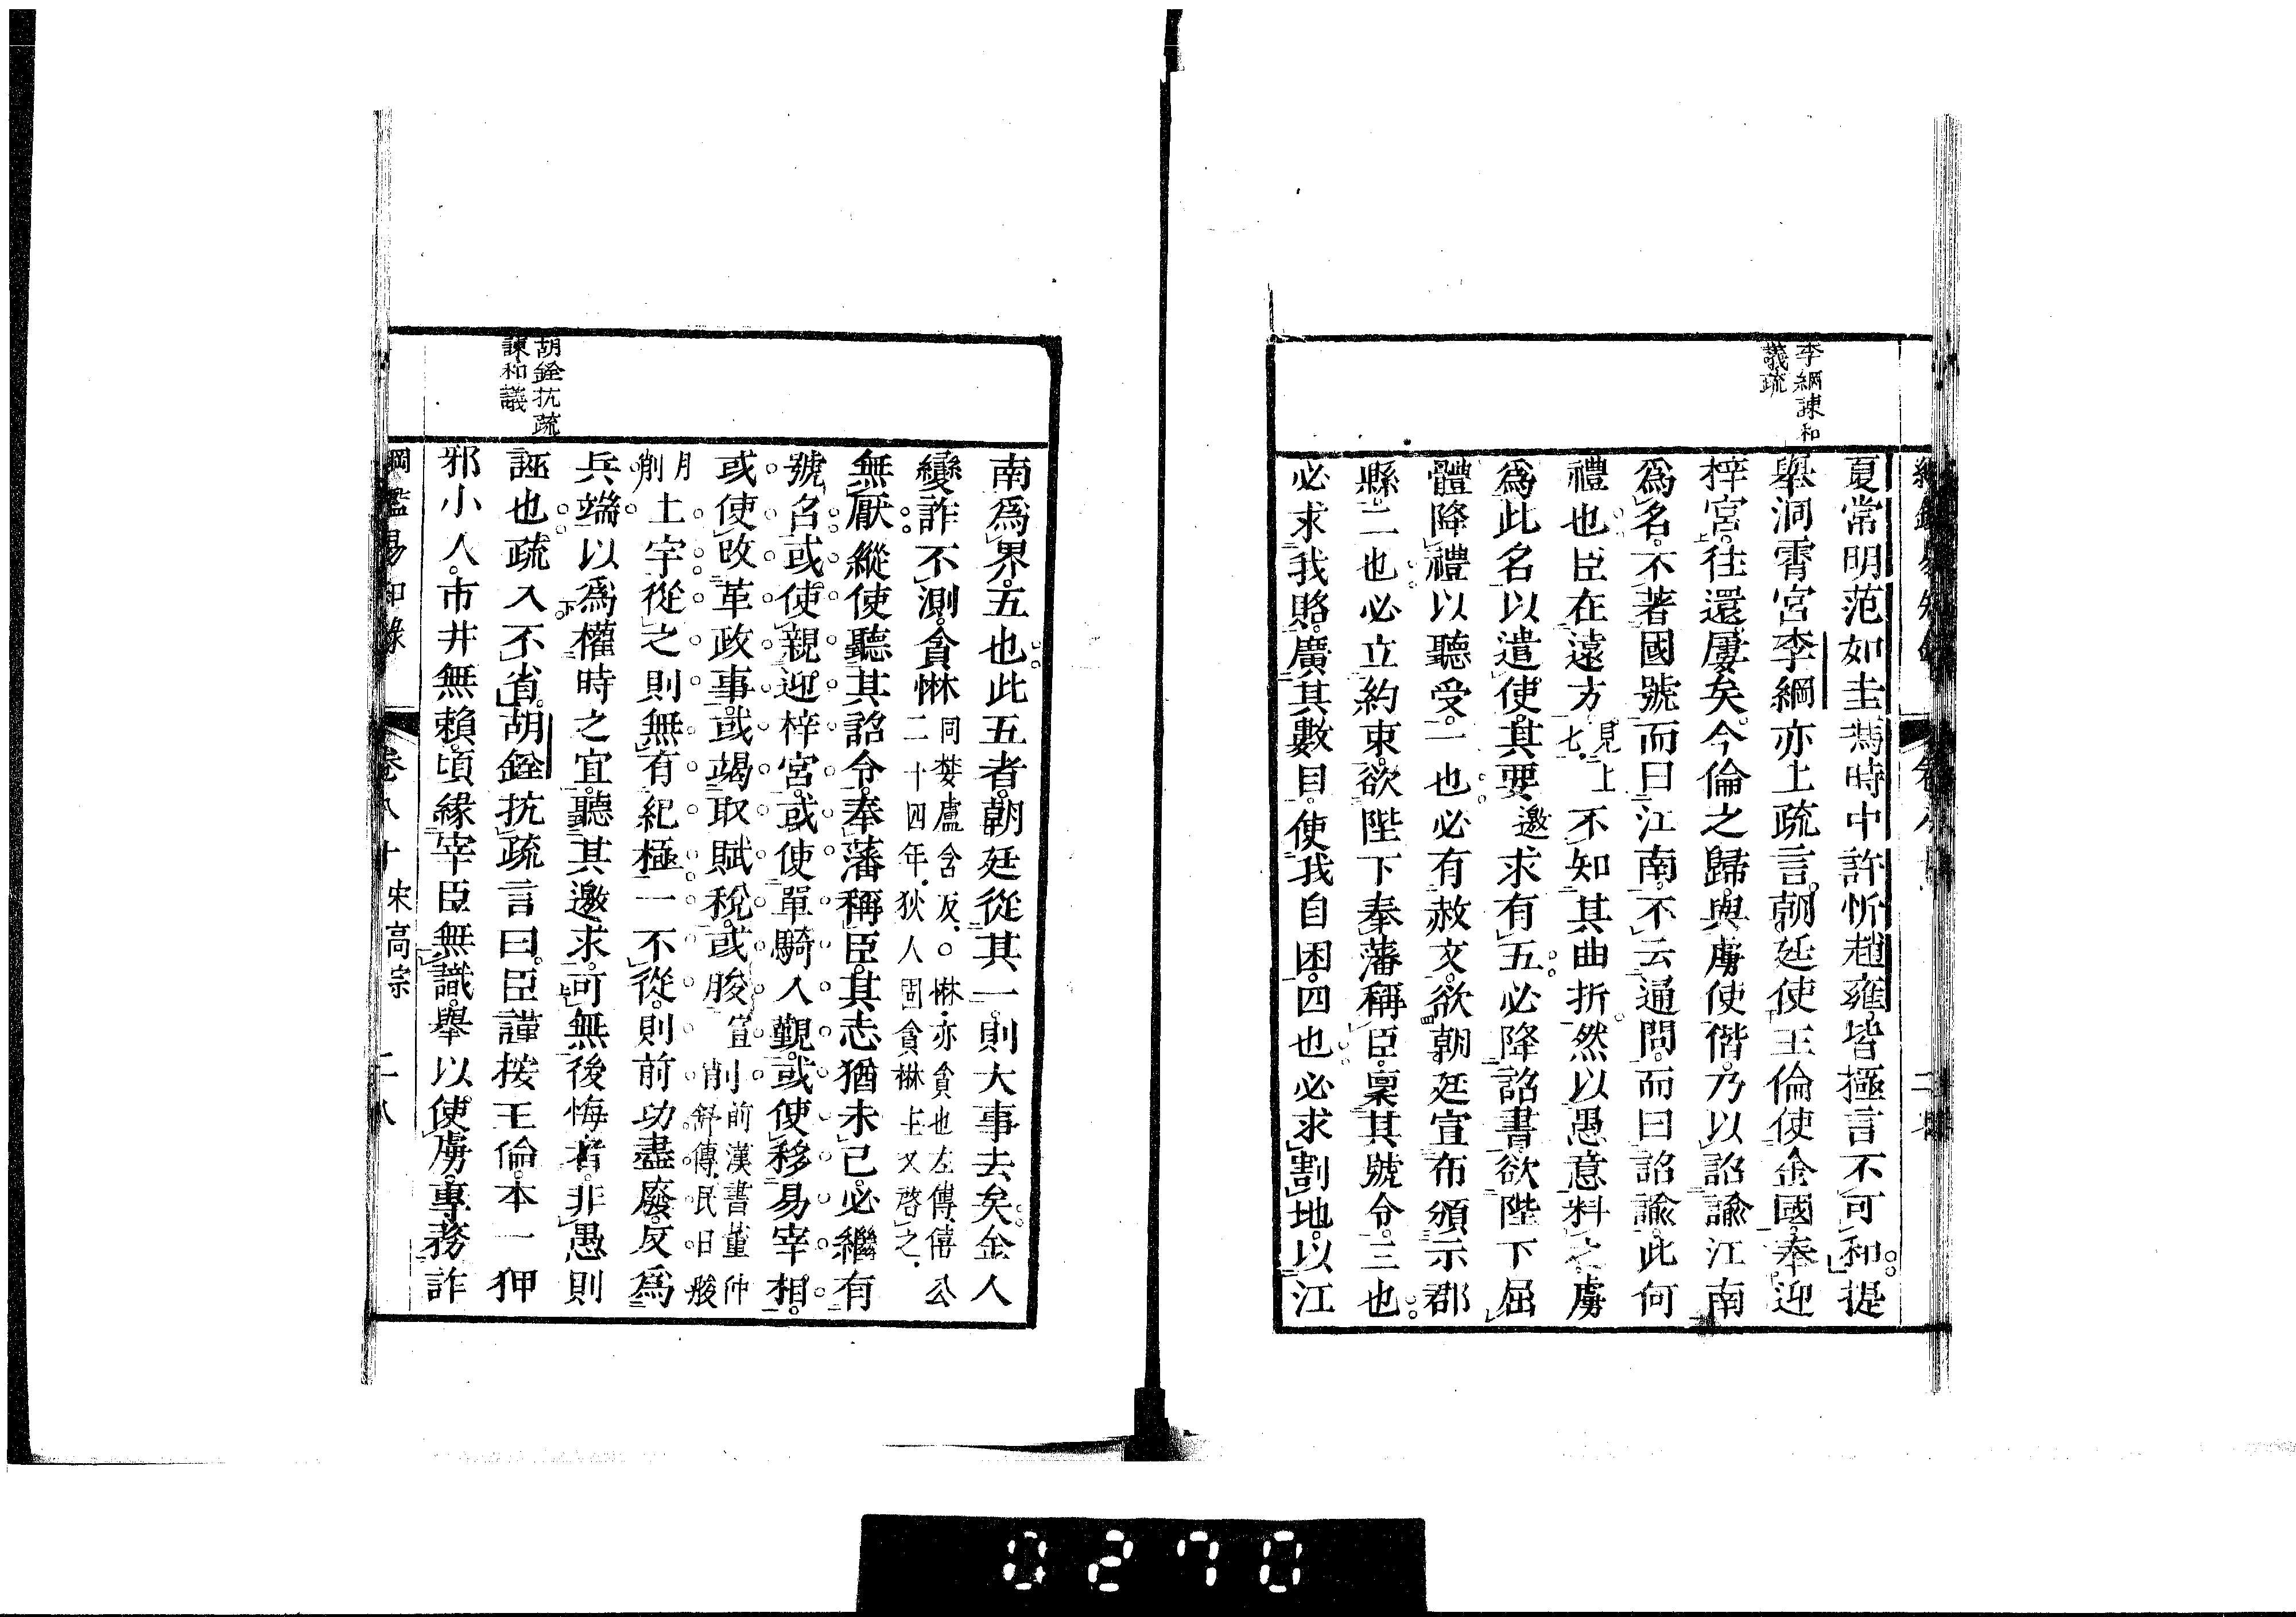 李綱諫和
議疏
夏常明范如圭馮時中許忻趙雍皆極言不可和提
舉洞霄宮李綱亦上疏言朝廷使王倫使金國奉迎
梓宮往還屢矣今倫之歸與虜使偕乃以詔諭江南
爲名不著國號而曰江南不云通問而曰詔諭此何
禮也臣在遠方見上七不知其曲折然以愚意料之虜
爲此名以遣使其要邀求有五必降詔書欲陛下屈
體降禮以聽受一也必有赦文欲朝廷宣布頒示郡
縣二也必立約束欲陛下奉藩稱臣稟其號令三也
必求我賂廣其數目使我自困四也必求割地以江
南爲界五也此五者朝廷從其一則大事去矣金人
變詐不測貪惏同婪盧含反○惏亦貪也左傳僖公二十四年狄人固貪惏王又啓之
無厭縱使聽其詔令奉藩稱臣其志猶未已必繼有
號召或使親迎梓宮或使單騎入覲或使移易宰相
或使改革政事或竭取賦稅或朘宣削前漢書董仲舒傳民日朘月削
土宇從之則無有紀極一不從則前功盡廢反爲
兵端以爲權時之宜聽其邀求可無後悔者非愚則
誣也疏入不省胡銓抗疏言曰臣謹按王倫本一狎
邪小人市井無賴頃緣宰臣無識舉以使虜專務詐
胡銓抗疏
諫和議
綱鑑易知錄 卷八十 宋高宗 二八